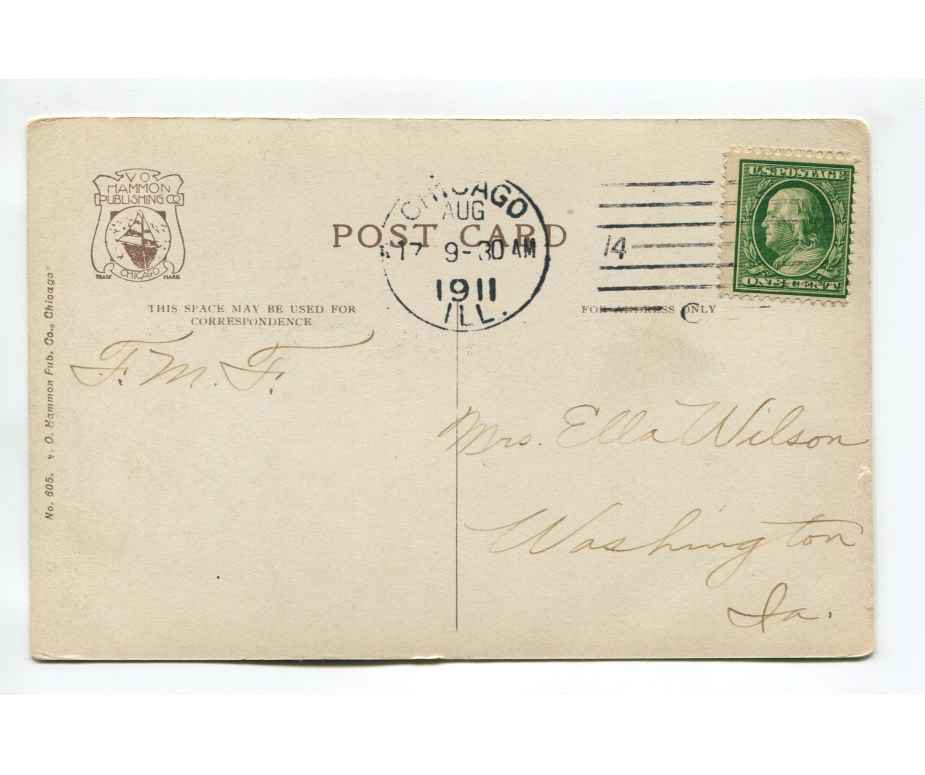 V O
HAMMON
PUBLISHING CO
CHICAGO
TRADE MARK
POST CARD
CHICAGO
AUG
17 9-30 AM
1911
ILL.
14
C
U.S. POSTAGE
ONE CENT
THIS SPACE MAY BE USED FOR
CORRESPONDENCE
FOR ADDRESS ONLY
F. M. F.
Mrs. Ella Wilson
Washington
Ia.
No. 605. V. O. Hammon Pub. Co., Chicago